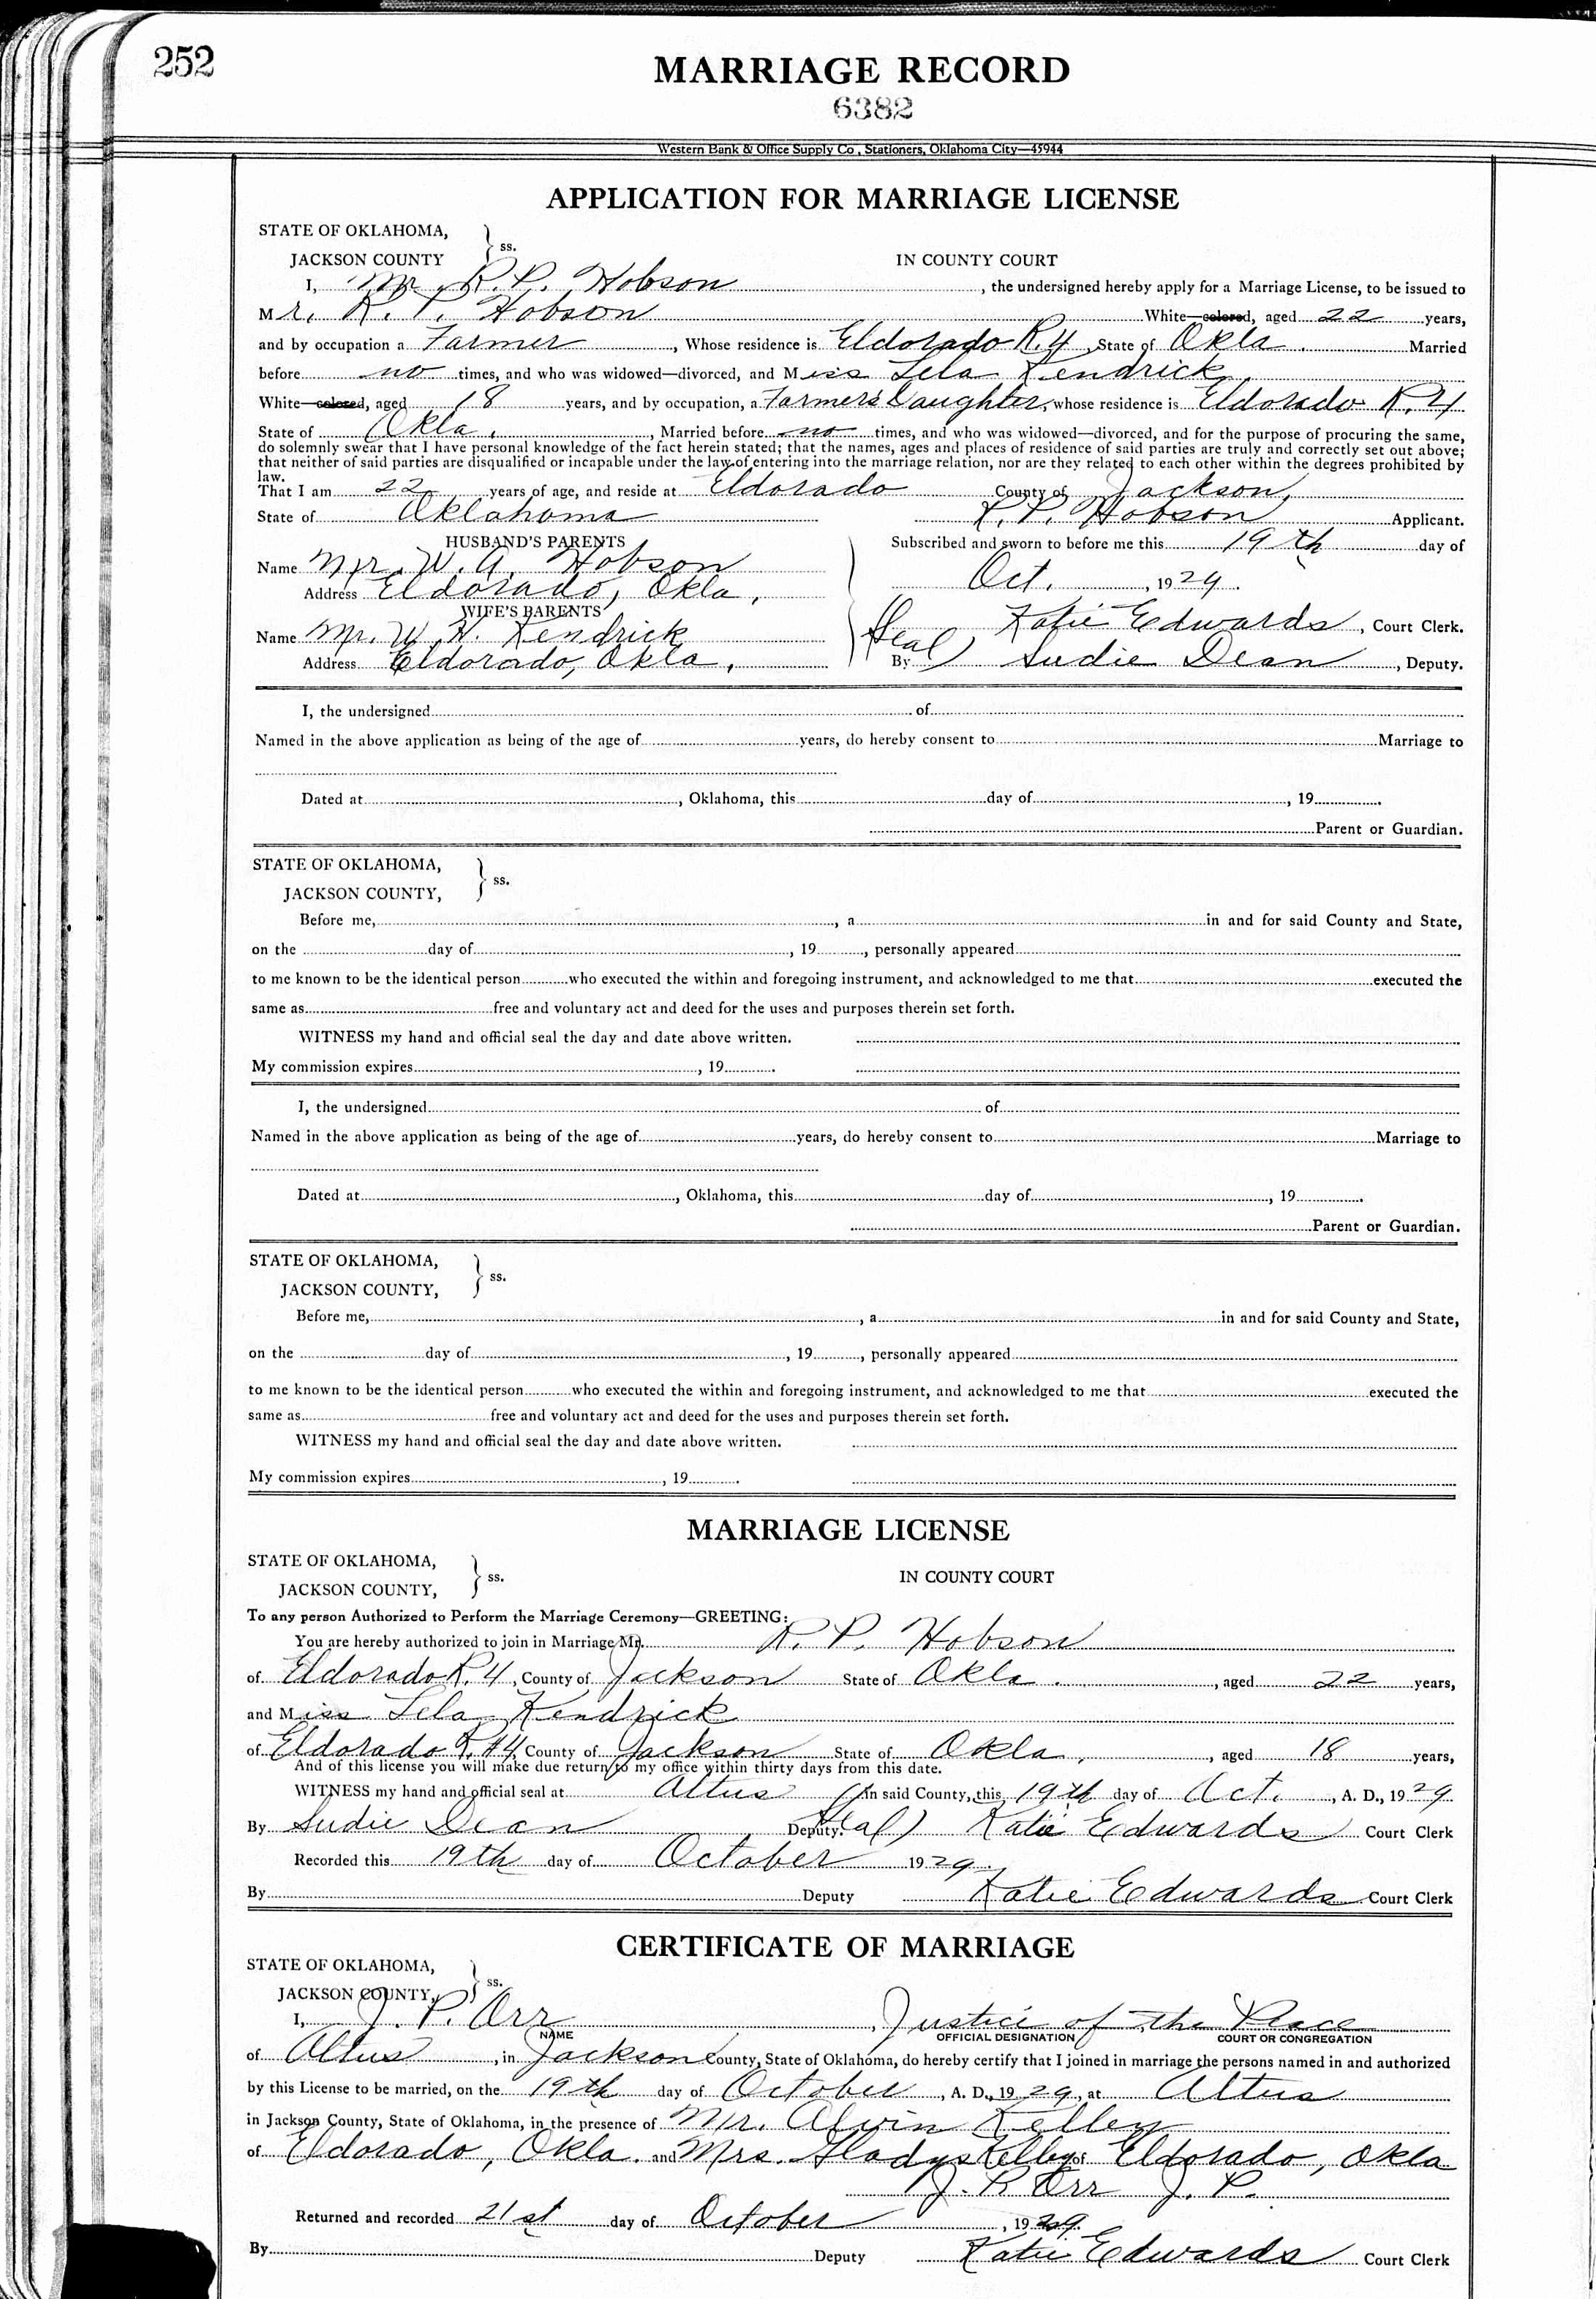 252
MARRIAGE RECORD
6382
Western Bank & Office Supply Co., Stationers, Oklahoma City—45944
APPLICATION FOR MARRIAGE LICENSE
STATE OF OKLAHOMA,
JACKSON COUNTY } ss. IN COUNTY COURT
I, Mr. R. P. Hobson, the undersigned hereby apply for a Marriage License, to be issued to
Mr. R. P. Hobson White—colored, aged 22 years,
and by occupation a Farmer, Whose residence is Eldorado R. 4, State of Okla. Married
before no times, and who was widowed—divorced, and Miss Lela Kendrick
White—colored, aged 18 years, and by occupation, a Farmer's Daughter, whose residence is Eldorado R. 4
State of Okla., Married before no times, and who was widowed—divorced, and for the purpose of procuring the same,
do solemnly swear that I have personal knowledge of the fact herein stated; that the names, ages and places of residence of said parties are truly and correctly set out above;
that neither of said parties are disqualified or incapable under the law of entering into the marriage relation, nor are they related to each other within the degrees prohibited by
law.
That I am 22 years of age, and reside at Eldorado County of Jackson,
State of Oklahoma R. P. Hobson Applicant.
HUSBAND'S PARENTS Subscribed and sworn to before me this 19th day of
Name Mr. W. A. Hobson
Address Eldorado, Okla. Oct., 1929.
WIFE'S PARENTS
Name Mr. W. H. Kendrick (Seal) Katie Edwards, Court Clerk.
Address Eldorado, Okla. By Sudie Dean, Deputy.
I, the undersigned of
Named in the above application as being of the age of years, do hereby consent to Marriage to
Dated at, Oklahoma, this day of, 19
Parent or Guardian.
STATE OF OKLAHOMA,
JACKSON COUNTY, } ss.
Before me,, a in and for said County and State,
on the day of, 19, personally appeared
to me known to be the identical person who executed the within and foregoing instrument, and acknowledged to me that executed the
same as free and voluntary act and deed for the uses and purposes therein set forth.
WITNESS my hand and official seal the day and date above written.
My commission expires, 19.
I, the undersigned of
Named in the above application as being of the age of years, do hereby consent to Marriage to
Dated at, Oklahoma, this day of, 19
Parent or Guardian.
STATE OF OKLAHOMA,
JACKSON COUNTY, } ss.
Before me,, a in and for said County and State,
on the day of, 19, personally appeared
to me known to be the identical person who executed the within and foregoing instrument, and acknowledged to me that executed the
same as free and voluntary act and deed for the uses and purposes therein set forth.
WITNESS my hand and official seal the day and date above written.
My commission expires, 19.
MARRIAGE LICENSE
STATE OF OKLAHOMA,
JACKSON COUNTY, } ss. IN COUNTY COURT
To any person Authorized to Perform the Marriage Ceremony—GREETING:
You are hereby authorized to join in Marriage Mr. R. P. Hobson
of Eldorado R. 4, County of Jackson State of Okla., aged 22 years,
and Miss Lela Kendrick
of Eldorado R. #4, County of Jackson State of Okla., aged 18 years,
And of this license you will make due return to my office within thirty days from this date.
WITNESS my hand and official seal at Altus in said County, this 19th day of Oct., A. D., 1929.
By Sudie Dean Deputy. (Seal) Katie Edwards Court Clerk
Recorded this 19th day of October 1929.
By Deputy Katie Edwards Court Clerk
CERTIFICATE OF MARRIAGE
STATE OF OKLAHOMA,
JACKSON COUNTY, } ss.
I, J. P. Orr, Justice of the Peace
NAME OFFICIAL DESIGNATION COURT OR CONGREGATION
of Altus, in Jackson County, State of Oklahoma, do hereby certify that I joined in marriage the persons named in and authorized
by this License to be married, on the 19th day of October, A. D., 1929, at Altus
in Jackson County, State of Oklahoma, in the presence of Mr. Alvin Kelley
of Eldorado, Okla. and Mrs. Gladys Kelley of Eldorado, Okla
J. P. Orr J. P.
Returned and recorded 21st day of October, 1929.
By Deputy Katie Edwards Court Clerk